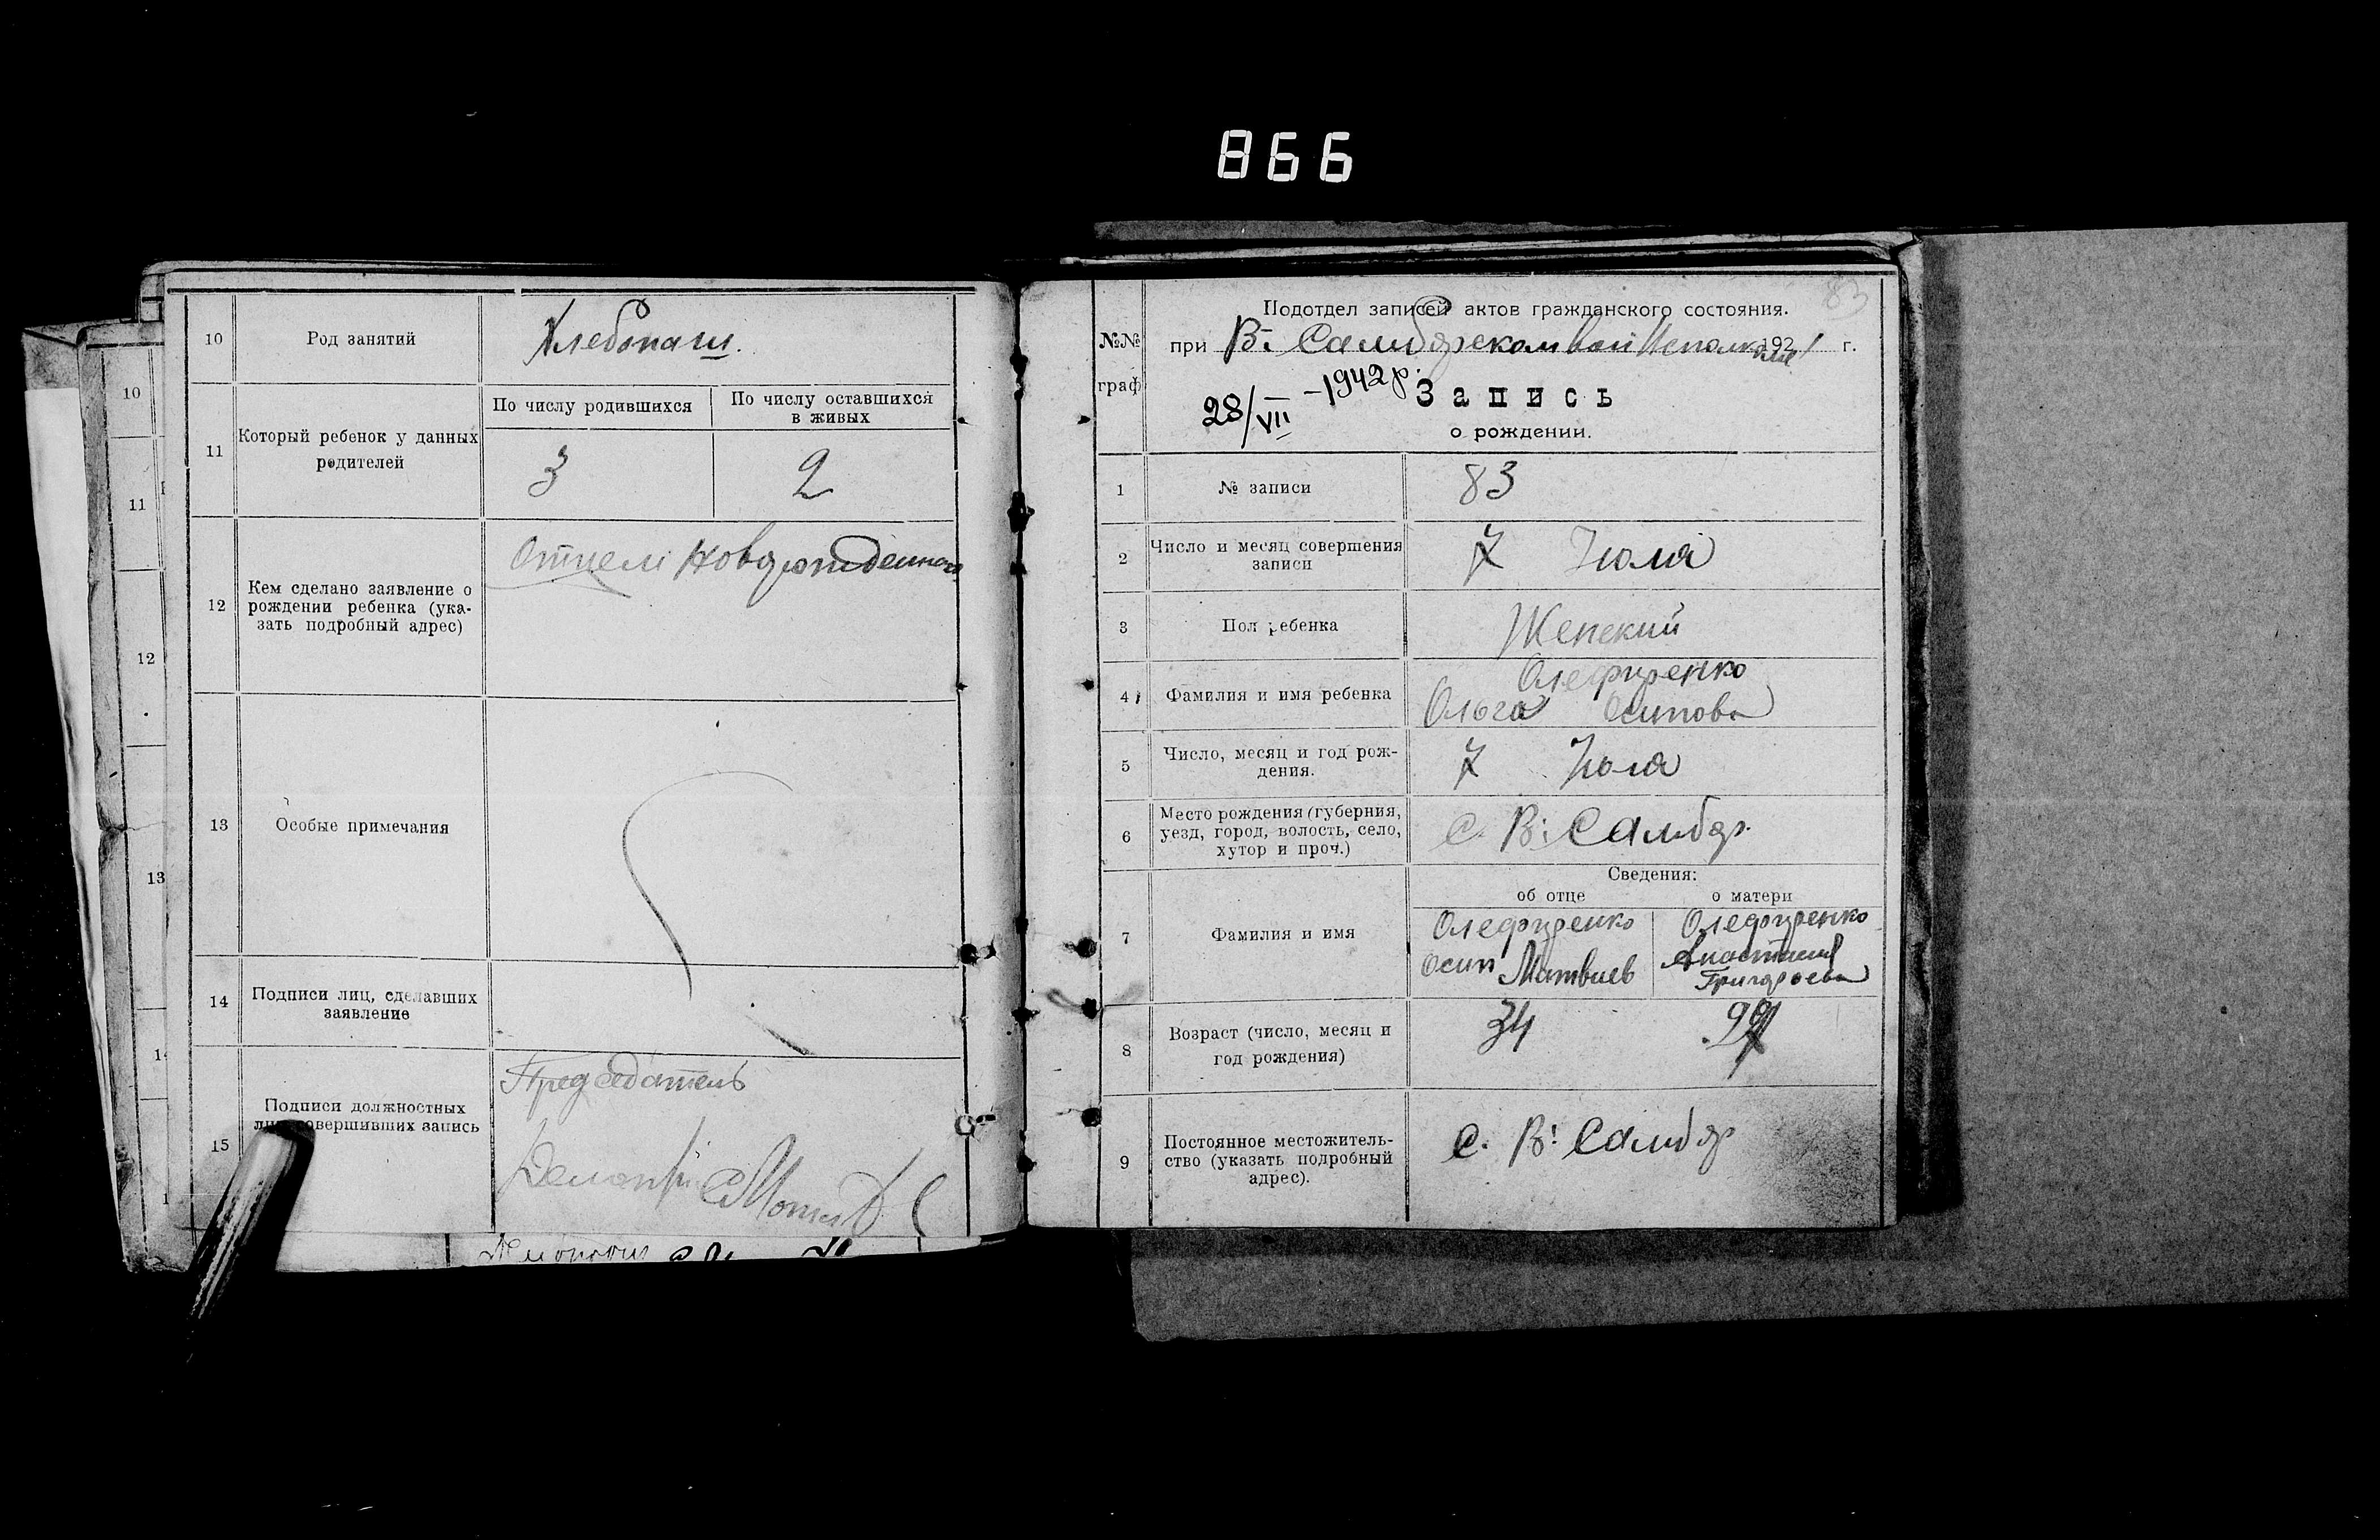 866
10 Род занятий Хлебопаш.
11 Который ребенок у данных родителей
По числу родившихся По числу оставшихся в живых
3 2
12 Кем сделано заявление о
рождении ребенка (ука-
зать подробный адрес)
Отцем новорожденного
13 Особые примечания
14 Подписи лиц, сделавших
заявление
15 Подписи должностных
лиц совершивших запись
Председатель
10
11
12
13
83
Подотдел записей актов гражданского состояния.
№№
граф
при В. Самборском вол Исполкоме 1921 г.
28/VII -1942 р.
Запись
о рождении.
1 № записи 83
2 Число и месяц совершения
записи
7 Июля
3 Пол ребенка Женский
4 Фамилия и имя ребенка
Олефиренко
Ольга Осипова
5 Число, месяц и год рож-
дения.
7 Июля
6 Место рождения (губерния,
уезд, город, волость, село,
хутор и проч.)
С. В: Самбор.
Сведения:
об отце о матери
7 Фамилия и имя
Олефиренко Олефиренко
Осип Матвиев Анастасия
Григорьева
8 Возраст (число, месяц и
год рождения)
34
9 Постоянное местожитель-
ство (указать подробный
адрес).
С. В: Самбор